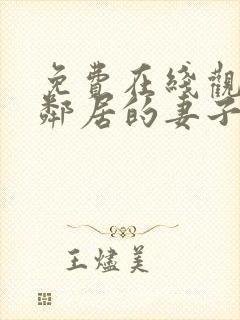 免費在綫觀
鄰居的妻子
王燼美